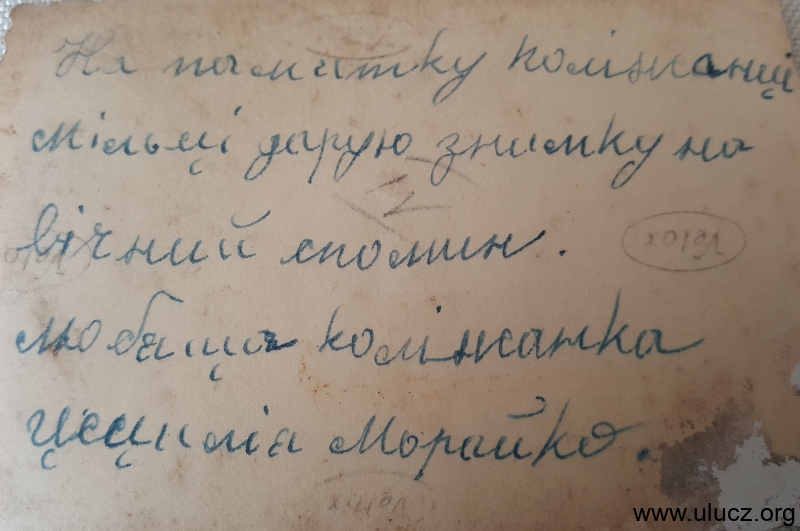 На памятку коліжанці
Мільці дарую знимку на
вічний спомин.
Velox
любяща коліжанка
Цецилія Морайко.
Velox
www.ulucz.org